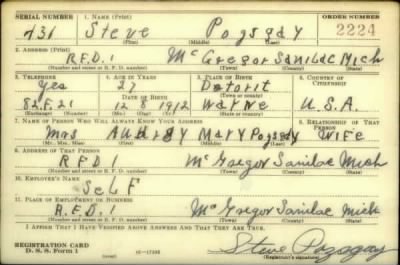 SERIAL NUMBER 1. NAME (Print) ORDER NUMBER
431 Steve Pozsgay 2224
(First) (Middle) (Last)
2. ADDRESS (Print)
R.F.D.1 McGregor Sanilac Mich
(Number and street or R. F. D. number) (Town) (County) (State)
3. TELEPHONE 4. AGE IN YEARS 5. PLACE OF BIRTH 6. COUNTRY OF CITIZENSHIP
Yes 27 Detorit
DATE OF BIRTH
82F.21 12 8 1912 Wayne U.S.A.
(Exchange) (Number) (Mo.) (Day) (Yr.) (State or country)
7. NAME OF PERSON WHO WILL ALWAYS KNOW YOUR ADDRESS 8. RELATIONSHIP OF THAT PERSON
Mrs Audrey Mary Pozsgay Wife
(Mr., Mrs., Miss) (First) (Middle) (Last)
9. ADDRESS OF THAT PERSON
RFD1 McGregor Sanilac Mich
(Number and street or R. F. D. number) (Town) (County) (State)
10. EMPLOYER'S NAME
Self
11. PLACE OF EMPLOYMENT OR BUSINESS
R.F.D.1 McGregor Sanilac Mich
(Number and street or R. F. D. number) (Town) (County) (State)
I AFFIRM THAT I HAVE VERIFIED ABOVE ANSWERS AND THAT THEY ARE TRUE.
REGISTRATION CARD
D. S. S. Form 1 (over) Steve Pozsgay
(Registrant's signature)